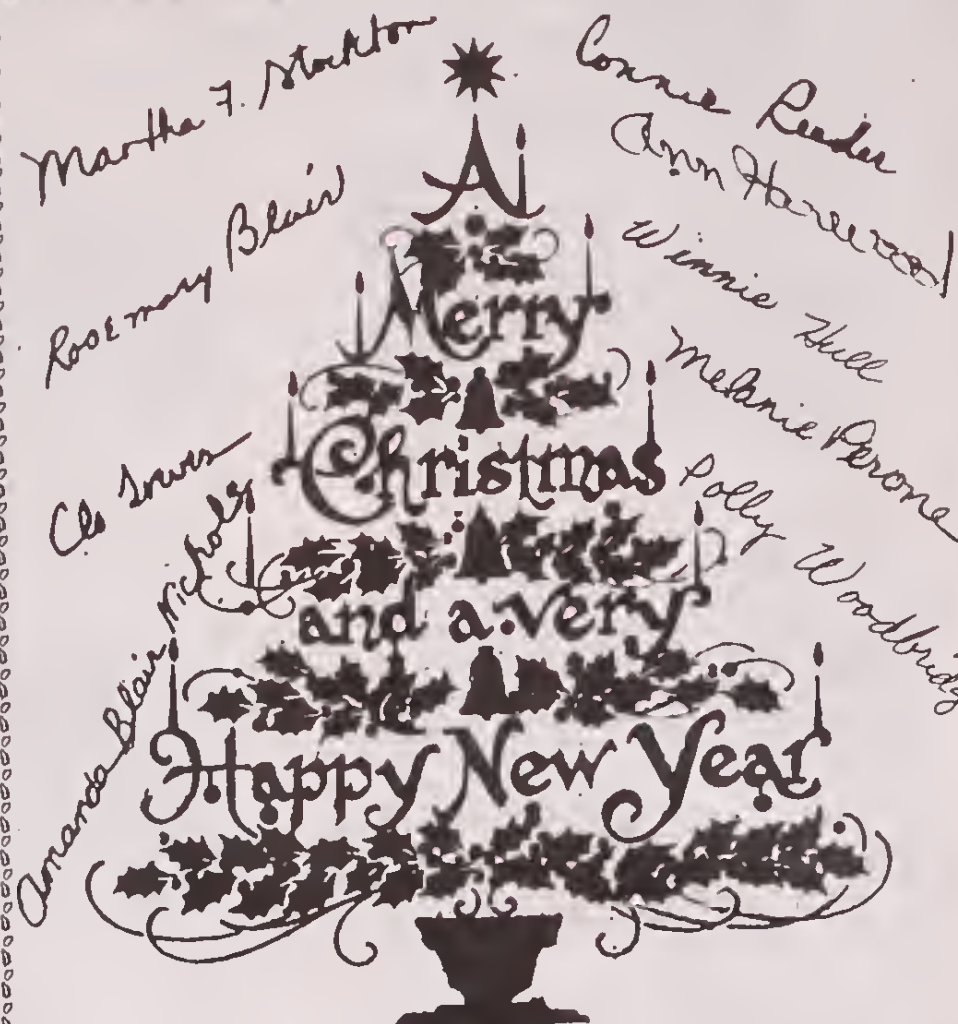 Martha F. Stockton
Rosemary Blair
Amanda Blair Nichols
Connie Reeder
Ann Harewood
Winnie Hull
Melanie Perone
Polly Woodbridg
A
Merry
Christmas
and a very
Happy New Year